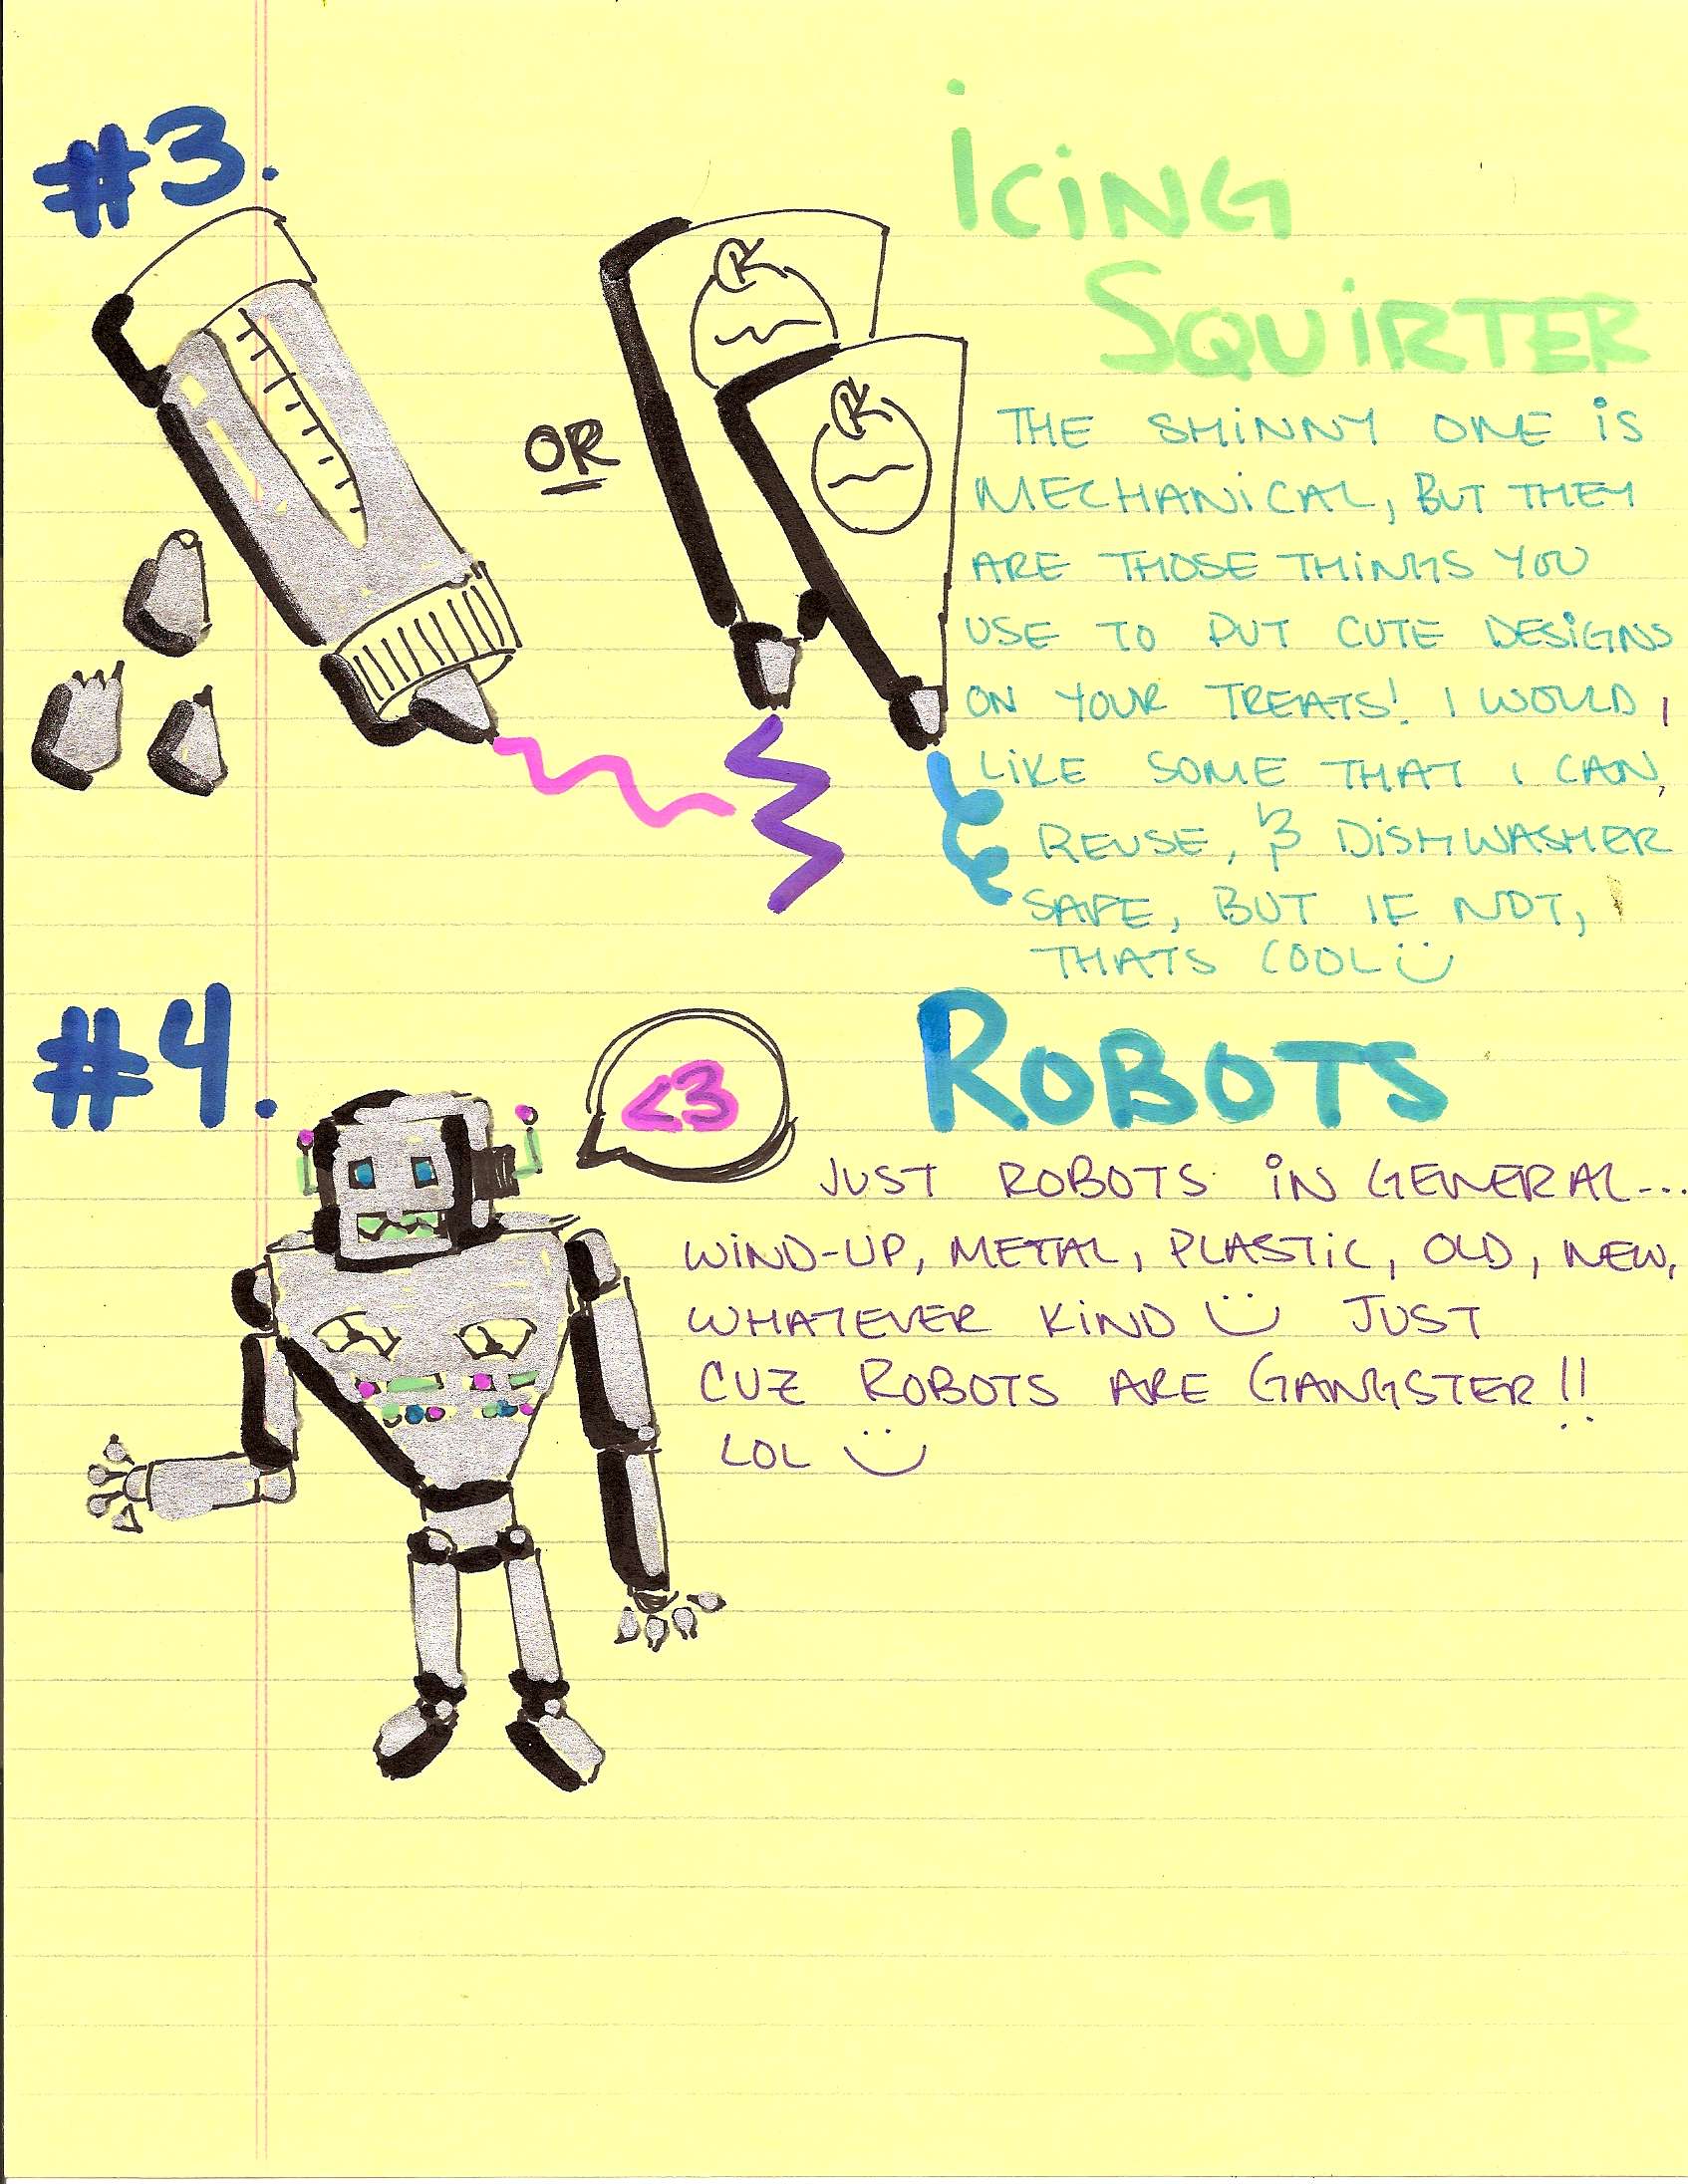 #3.
Icing
Squirter
OR
THE SHINNY ONE IS
MECHANICAL, BUT THEY
ARE THOSE THINGS YOU
USE TO PUT CUTE DESIGNS
ON YOUR TREATS! I WOULD
LIKE SOME THAT I CAN
REUSE, & DISHWASHER
SAFE, BUT IF NOT,
THATS COOL
#4.
<3
ROBOTS
JUST ROBOTS IN GENERAL...
WIND-UP, METAL, PLASTIC, OLD, NEW,
WHATEVER KIND JUST
CUZ ROBOTS ARE GANGSTER!!
LOL